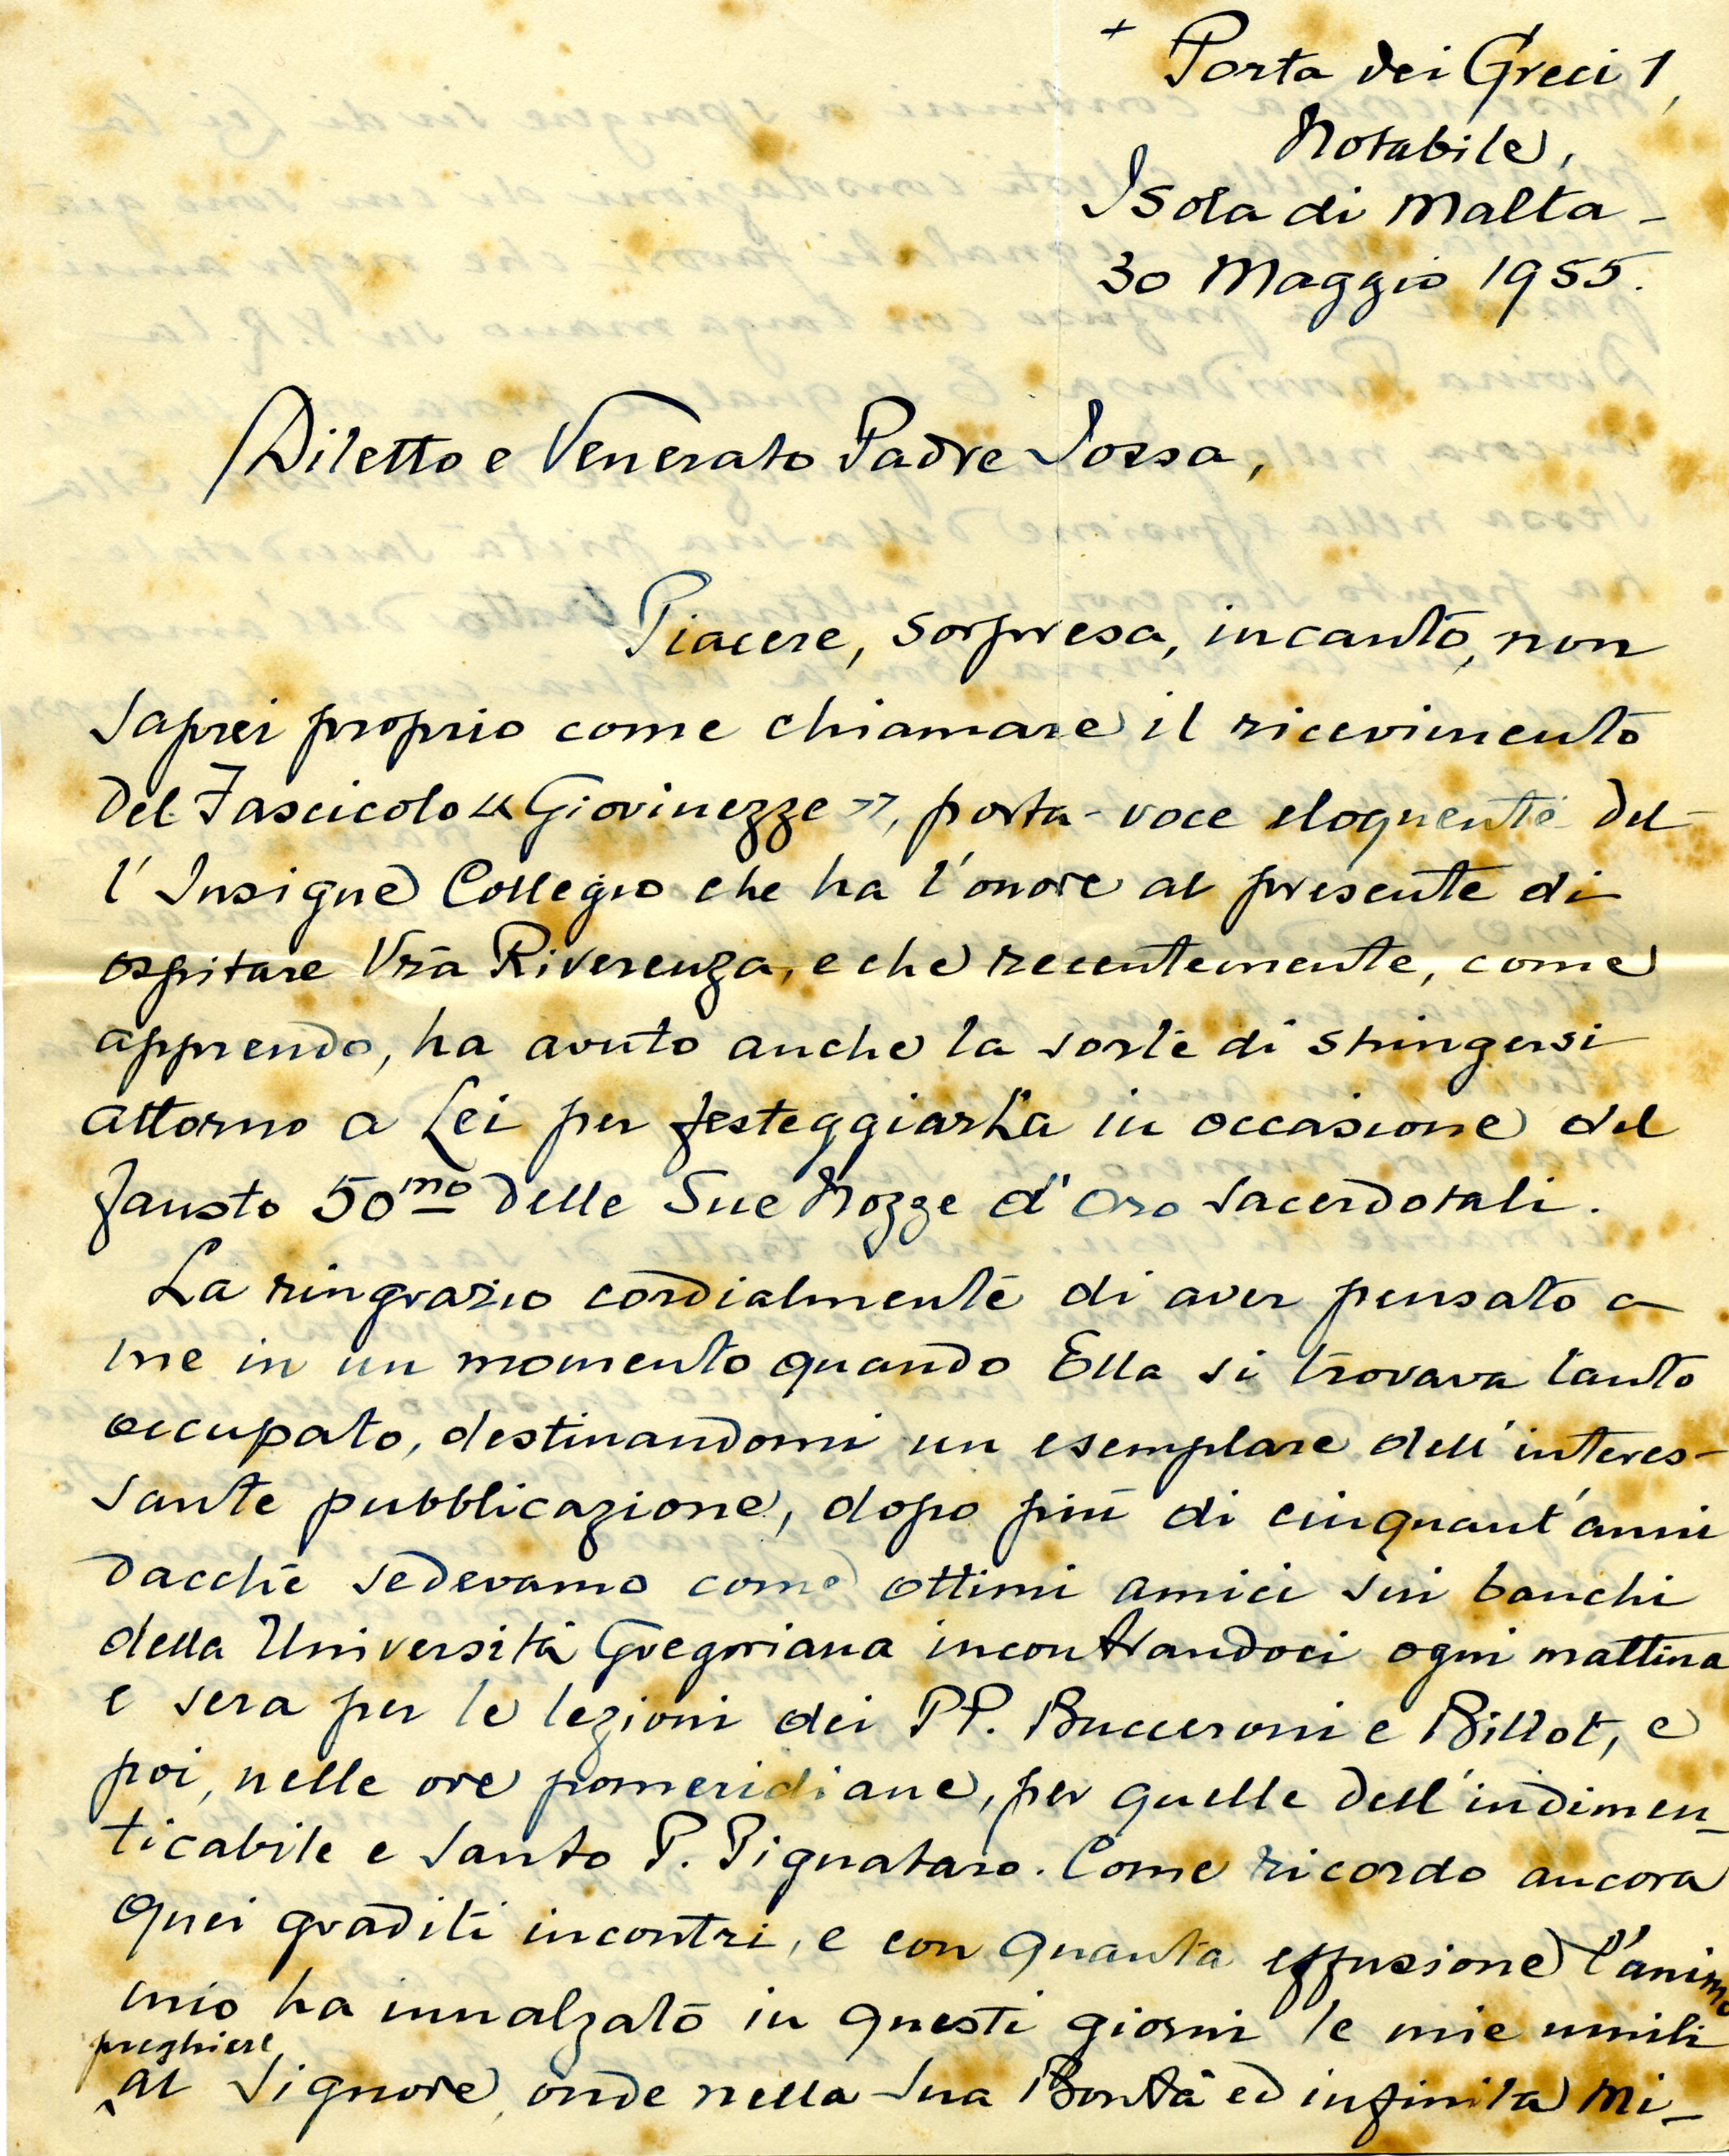 +
Porta dei Greci 1,
Notabile,
Isola di Malta -
30 Maggio 1955.
Diletto e Venerato Padre Sossa,
Piacere, sorpresa, incanto, non
saprei proprio come chiamare il ricevimento
del Fascicolo « Giovinezze », porta-voce eloquente del-
l'Insigne Collegio che ha l'onore al presente di
ospitare Vrā Riverenza, e che recentemente, come
apprendo, ha avuto anche la sorte di stringersi
attorno a Lei per festeggiarLa in occasione del
fausto 50mo delle Sue Nozze d'Oro sacerdotali.
La ringrazio cordialmente di aver pensato a
me in un momento quando Ella si trovava tanto
occupato, destinandomi un esemplare dell'interes-
sante pubblicazione, dopo più di cinquant'anni
dacchè sedevamo come ottimi amici sui banchi
della Università Gregoriana incontrandoci ogni mattina
e sera per le lezioni dei PP. Bucceroni e Billot, e
poi, nelle ore pomeridiane, per quelle dell'indimen-
ticabile e santo P. Pignataro. Come ricordo ancora
quei graditi incontri, e con quanta effusione l'animo
mio ha innalzato in questi giorni le mie umili
preghiere
^al Signore, onde nella Sua Bontà ed infinita Mi-